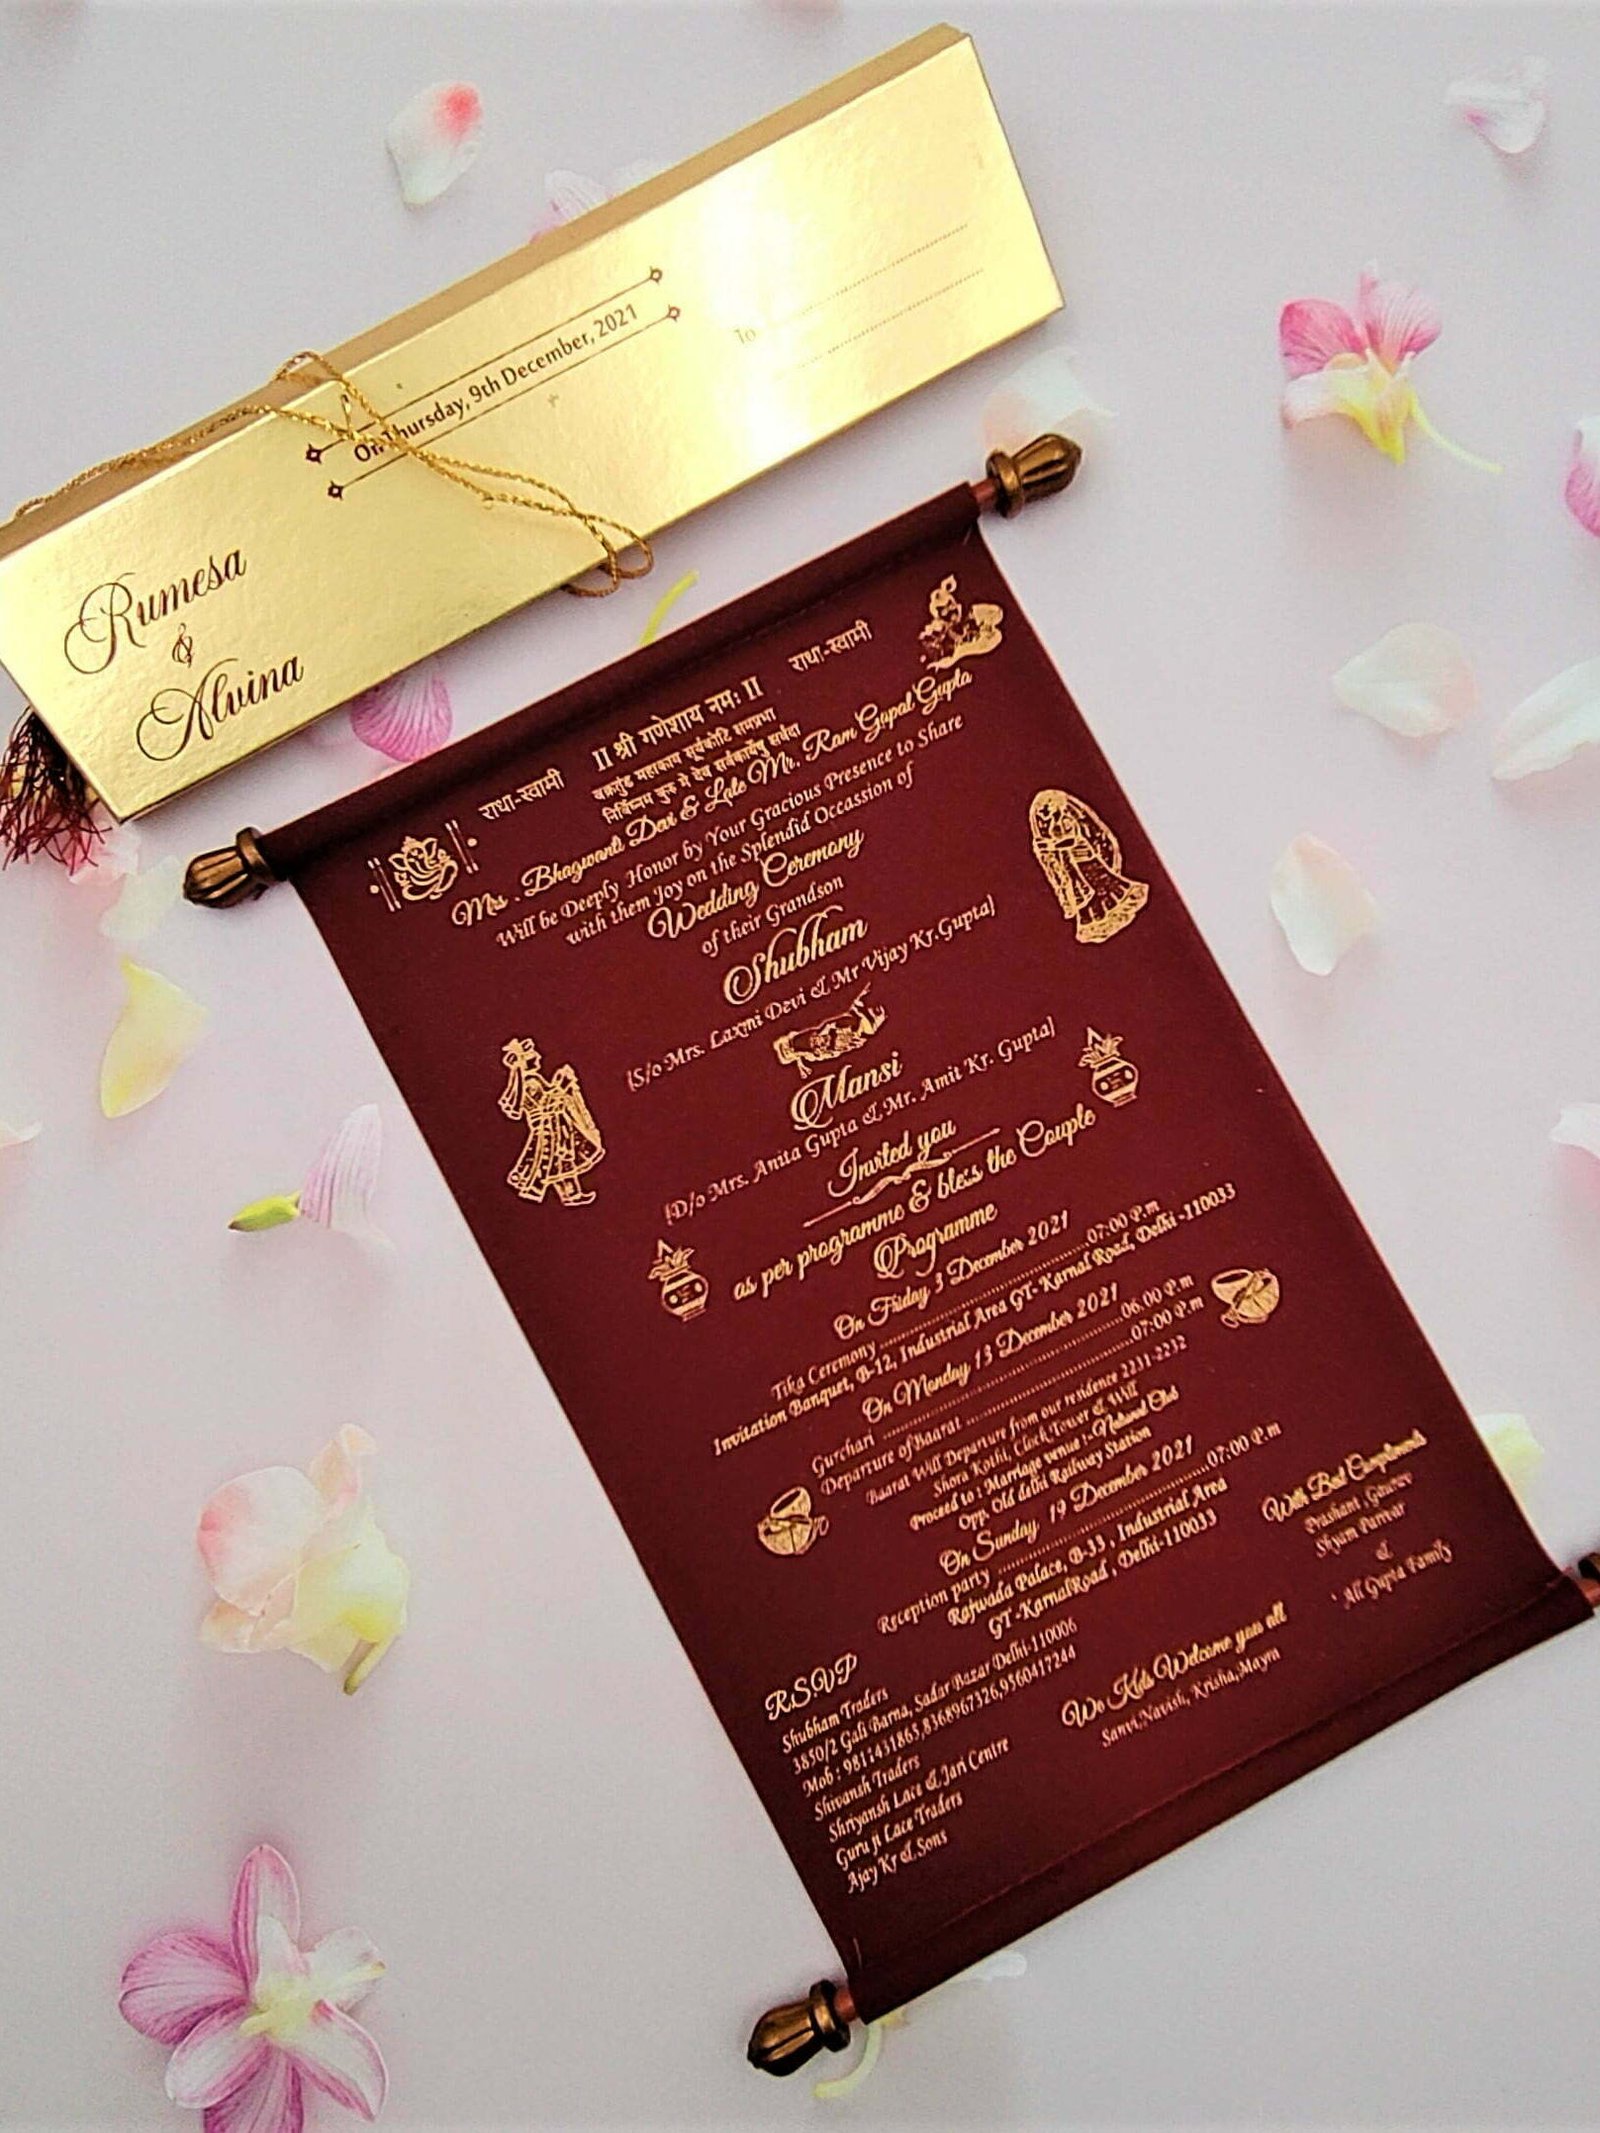 Rumesa
&
Alvina
On Thursday, 9th December, 2021
To
राधा-स्वामी
॥ श्री गणेशाय नमः ॥
राधा-स्वामी
वक्रतुंड महाकाय सूर्यकोटि समप्रभा
निर्विघ्नम कुरु मे देव सर्वकार्येषु सर्वदा
Mrs. Bhagwanti Devi & Late Mr. Ram Gopal Gupta
Will be Deeply Honor by Your Gracious Presence to Share
with them Joy on the Splendid Occassion of
Wedding Ceremony
of their Grandson
Shubham
[S/o Mrs. Laxmi Devi & Mr Vijay Kr.Gupta]
Mansi
[D/o Mrs. Anita Gupta & Mr. Amit Kr. Gupta]
Invited you
as per programme & bless the Couple
Programme
On Friday 3 December 2021
Tika Ceremony ........................................07:00 P.m
Invitation Banquet, B-12, Industrial Area GT-Karnal Road, Delhi-110033
On Monday 13 December 2021
Gurchari ........................................06.00 P.m
Departure of Baarat ........................................07:00 P.m
Baarat Will Departure from our residence 2231-2232
Shora Kothi, Clock Tower & Will
Proceed to : Marriage venue :- National Club
Opp. Old delhi Railway Station
On Sunday, 19 December 2021
Reception party ........................................07:00 P.m
Rajwada Palace, B-33, Industrial Area
GT-KarnalRoad, Delhi-110033
With Best Compliments
Prashant, Gaurav
Shyam Parivar
&
All Gupta Family
R.S.V.P
Shubham Traders
3850/2 Gali Barna, Sadar Bazar Delhi-110006
Mob : 9811431865,8368967326,9560417244
Shivansh Traders
Shriyansh Lace & Jari Centre
Guru ji Lace Traders
Ajay Kr & Sons
We Kids Welcome you all
Sanvi,Navish, Krisha,Mayra